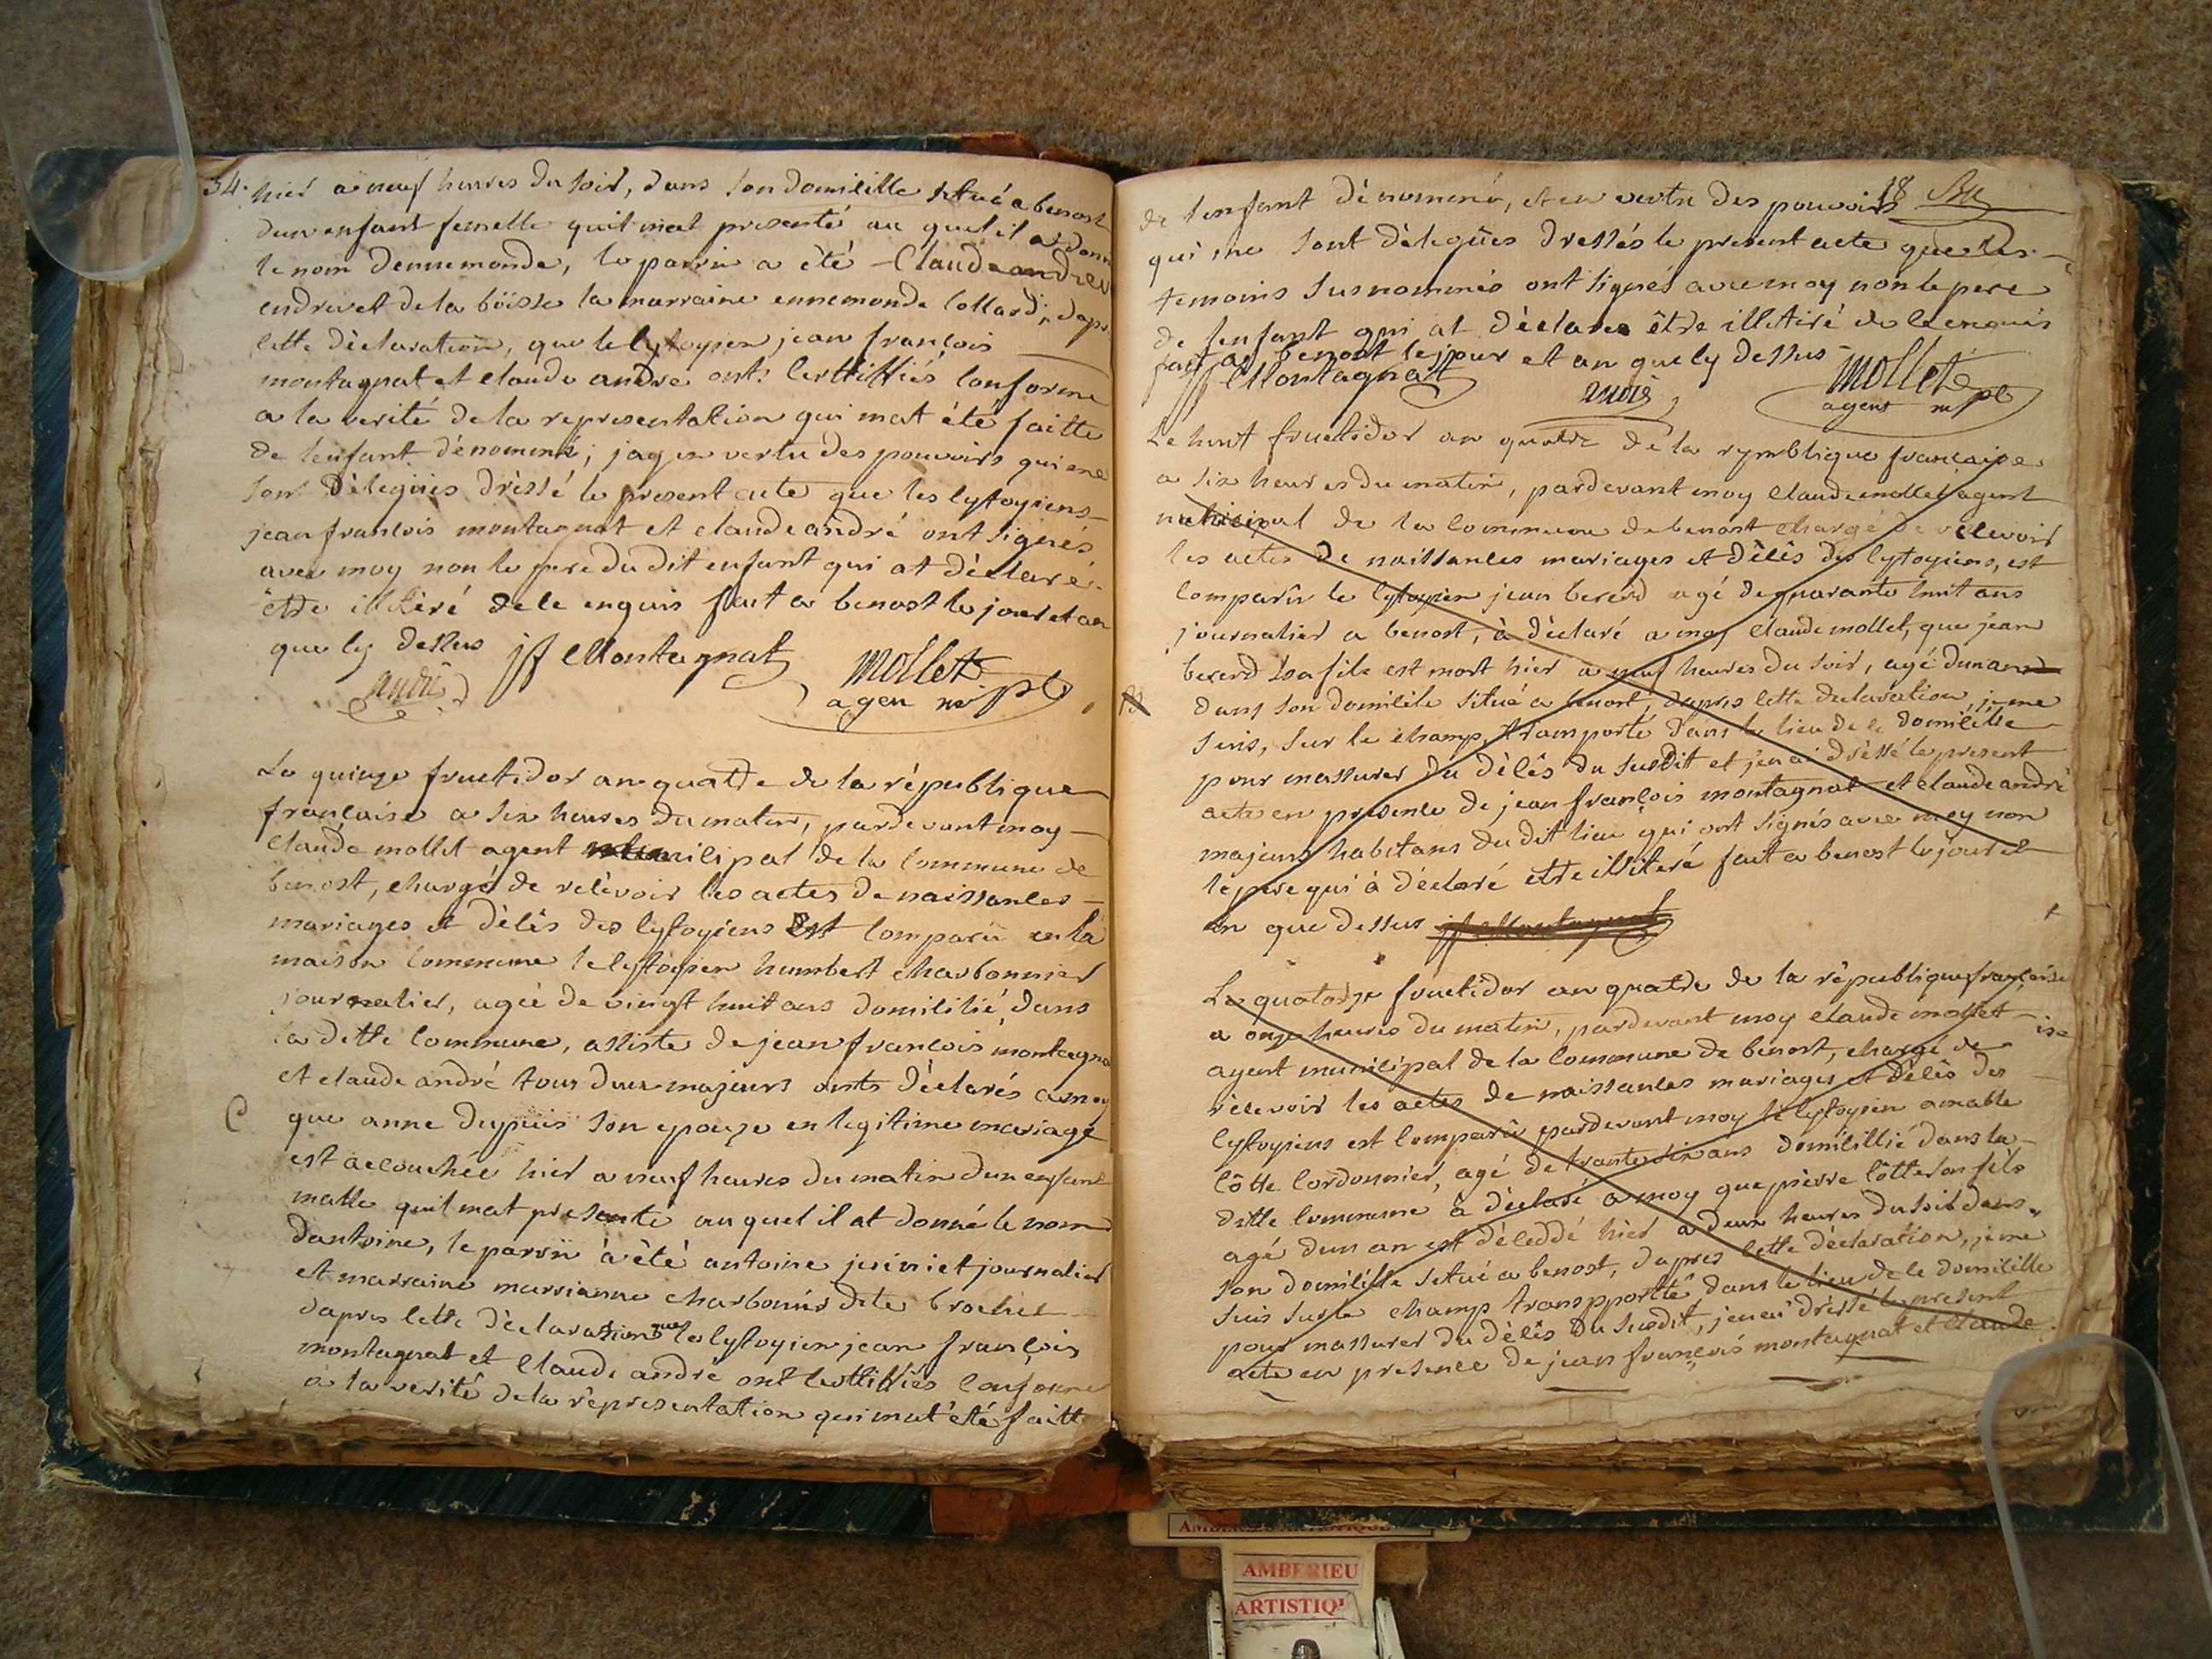 34.
hier a neuf heures du soir, dans son domicille situé a benost
dun enfant femelle quil mat presenté au quel il a donn
le nom dennemonde, le parrin a été Claude andrev
endrevet de la böisse la marraine ennemonde collard; dapr
cette dèclaration, que le cytoyien jean françois
montagnat et claude andre onts certtiffiés conforme
a la verité de la representation qui mat été faitte
de lenfant dénommé; jay en vertu des pouvoirs qui me
sont dèlegués dréssé le present acte que les cytoyiens
jean francois montagnat et claude andré ont signés
avec moy non le pere du dit enfant qui at dèclaré
être illitéré de ce enquis fait a benost le jour et an
que cy dessus jff Montagnat
andré
mollet
agen mpl
Le quinze fructidor an quattre de la rèpublique
francaise a six heures du matin, pardevant moy
Claude mollet agent municipal de la commune de
benost, chargé de recèvoir les actes de naissances
mariages et dècès des cytoyiens Est comparû en la
maison commune le cytoyien humbert charbonnier
journalier, agée de vingt huit ans domicilié dans
la ditte commune, assiste de jean francois montagna
et claude andré tous deux majeurs onts dèclarés a moy
C
que anne dupuis son epouze en legitime mariage
est accouchée hier a neuf heures du matin dun enfant
malle quil mat presenté au quel il at donné le nom
dantoine, le parrin à été antoine journalier
et marraine marrianne charbonnier dite brochet
dapres cette dèclaration que le cytoyien jean françois
montagnat et Claude andré ont certtiffiés conforme
a la verité de la rèpresentation qui mat été faitte
18
de lenfant dénommé, et en vertu des pouvoirs
qui me sont dèlegués dressés le present acte que les
temoins susnommés ont signés avec moy non le pere
de lenfant qui at dèclare être illitiré de ce enquis
fait a benost le jour et an que cy dessus
jff Montagnat
andré
mollet
agent mpl
Le huit fructidor an quatre de la republique francaise
a six heures du matin, pardevant moy Claude mollet agent
municipal de la commune de benost chargé de recevoir
les actes de naissances mariages et dècès des cytoyiens, est
comparû le cytoyien jean bererd agé de quarante huit ans
journalier a benost, à dèclaré a moy Claude mollet, que jean
bererd sa fils est mort hier a neuf heures du soir, agé dun an
dans son domicile situé a benost, dapres cette declaration, je me
suis, sur le champ transporté dans le lieu de ce domicille
pour massurer du dècès du susdit et jen ai dréssé le present
acte en presence de jean françois montagnat et claude andré
majeurs habitans du dit lieu qui ont signés avec moy non
le pere qui à déclaré ettre illitéré fait a benost le jour et
an que dessus jff Montagnat
Le quatorze fructidor an quatre de la rèpublique française
a onze heures du matin, pardevant moy claude mollet
agent municipal de la commune de benost, chargé de
rècevoir les actes de naissances mariages et dècès des
cytoyiens est comparû pardevant moy le cytoyien amable
côtte cordonnier, agé de trante six ans domicillié dans la
ditte commune à dèclaré a moy que pièrre côtte son fils
agé dun an est dèceddé hier a deux heures du soir dans
son domicille situé a benost, dapres cette dèclaration, je me
suis sur le champ transpportté dans le lieu de ce domicille
pour massurer du dècès du susdit, jen ai dréssé le present
acte en presence de jean françois montagnat et claude
AMBERIEU
ARTISTIQ